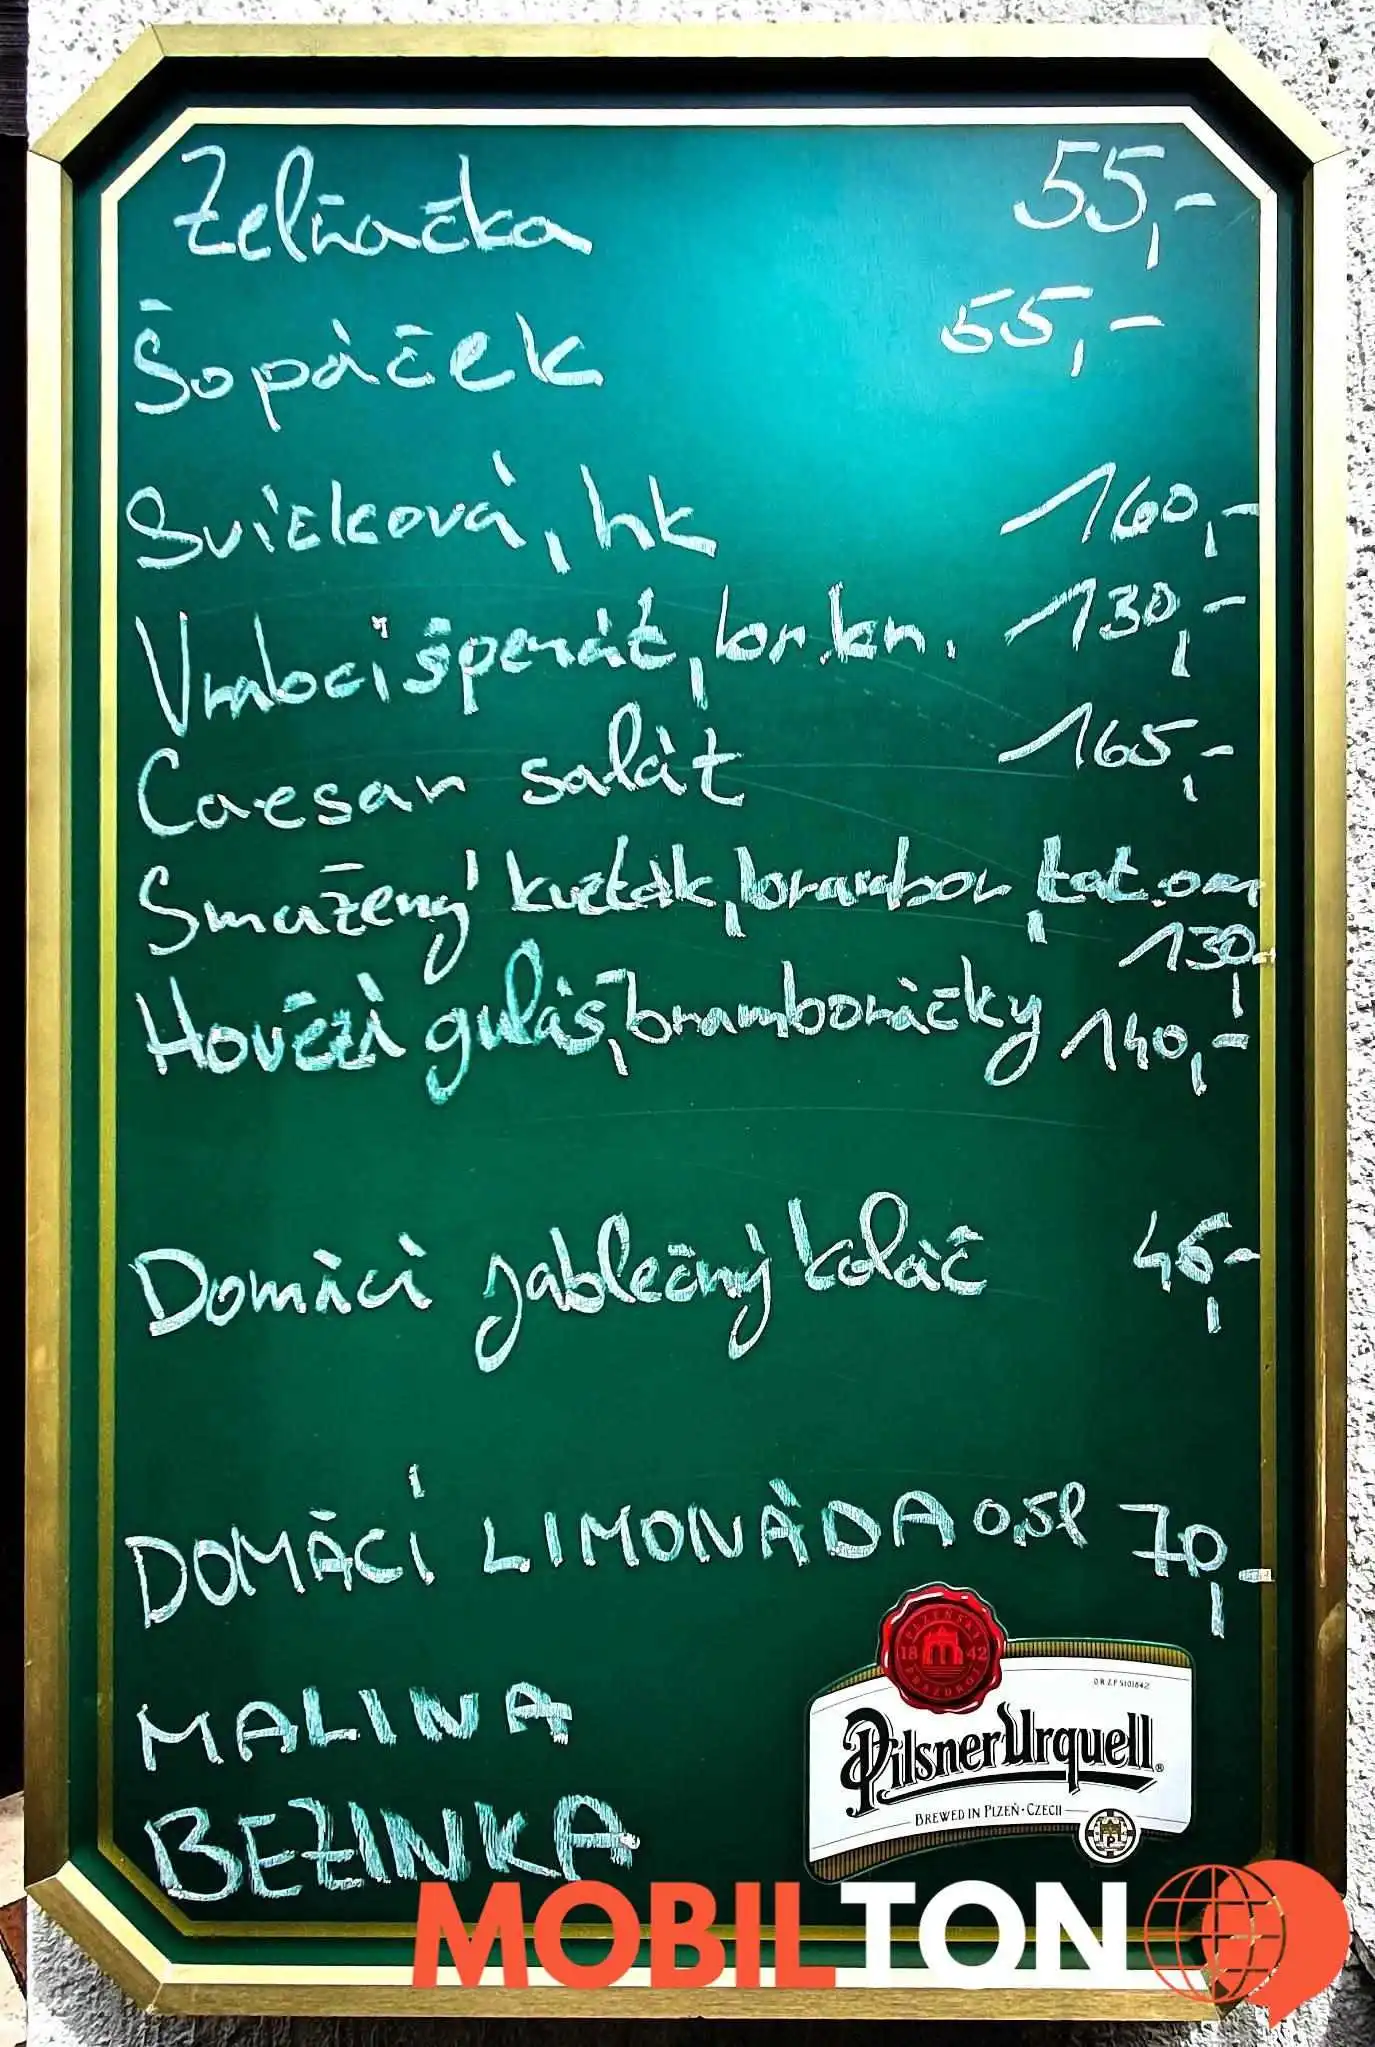 Zelňačka 55,-
Šopáček 55,-
Svíčková, hk 160,-
Vrabci špenát, br.kn. 130,-
Caesar salát 165,-
Smažený květák, brambor, tat.om
130,-
Hovězí guláš, bramboráčky 140,-
Domácí jablečný koláč 45,-
DOMÁCÍ LIMONÁDA 0,5l 70,-
MALINA
BEZINKA
PLZEŇSKÝ PRAZDROJ
1842
O.R.Z.P. S101842
Pilsner Urquell®
BREWED IN PLZEŇ · CZECH
MOBILTON